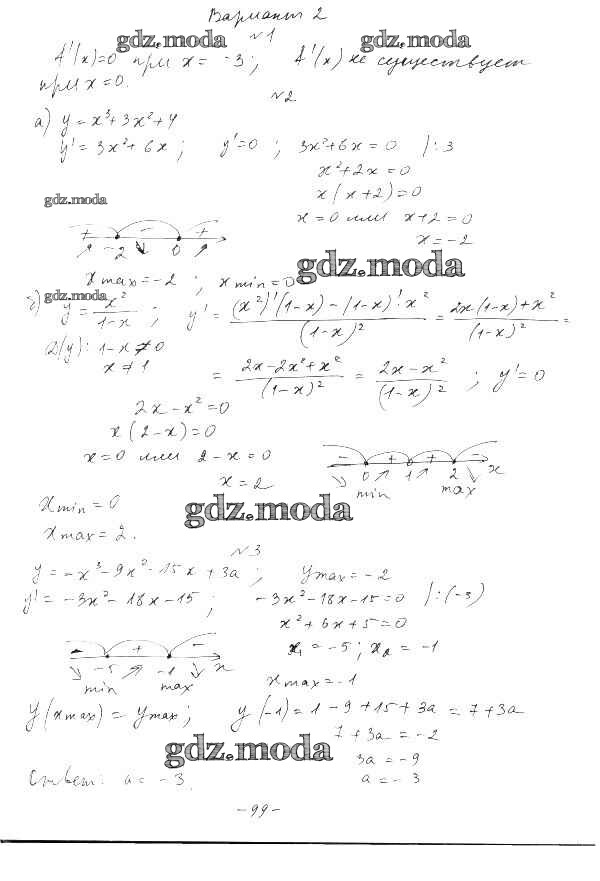 Вариант 2
gdz.moda gdz.moda
№1
A'(x)=0 при x = -3; A'(x) не существует
при x=0.
№2
а) y=x³+3x²+4
y' = 3x²+6x; y'=0; 3x²+6x=0 /:3
x²+2x=0
gdz.moda
x(x+2)=0
x=0 или x+2=0
x=-2
+ - +
-2 0
gdz.moda
x max=-2; x min=0
gdz.moda
б) y = x²/(1-x); y' = ((x²)'(1-x)-(1-x)'·x²)/(1-x)² = (2x(1-x)+x²)/(1-x)² =
D(y): 1-x≠0
x≠1
= (2x-2x²+x²)/(1-x)² = (2x-x²)/(1-x)²; y'=0
2x-x²=0
x(2-x)=0
x=0 или 2-x=0
x=2
- + + -
0 1 2 x
min max
x min = 0
gdz.moda
x max = 2.
№3
y=-x³-9x²-15x+3a; y max=-2
y'=-3x²-18x-15; -3x²-18x-15=0 /:(-3)
x²+6x+5=0
x₁=-5; x₂=-1
- + -
-5 -1 x
min max
x max=-1
y(x max)=y max; y(-1)=1-9+15+3a=7+3a
7+3a=-2
gdz.moda
3a=-9
Ответ: a=-3. a=-3
-99-